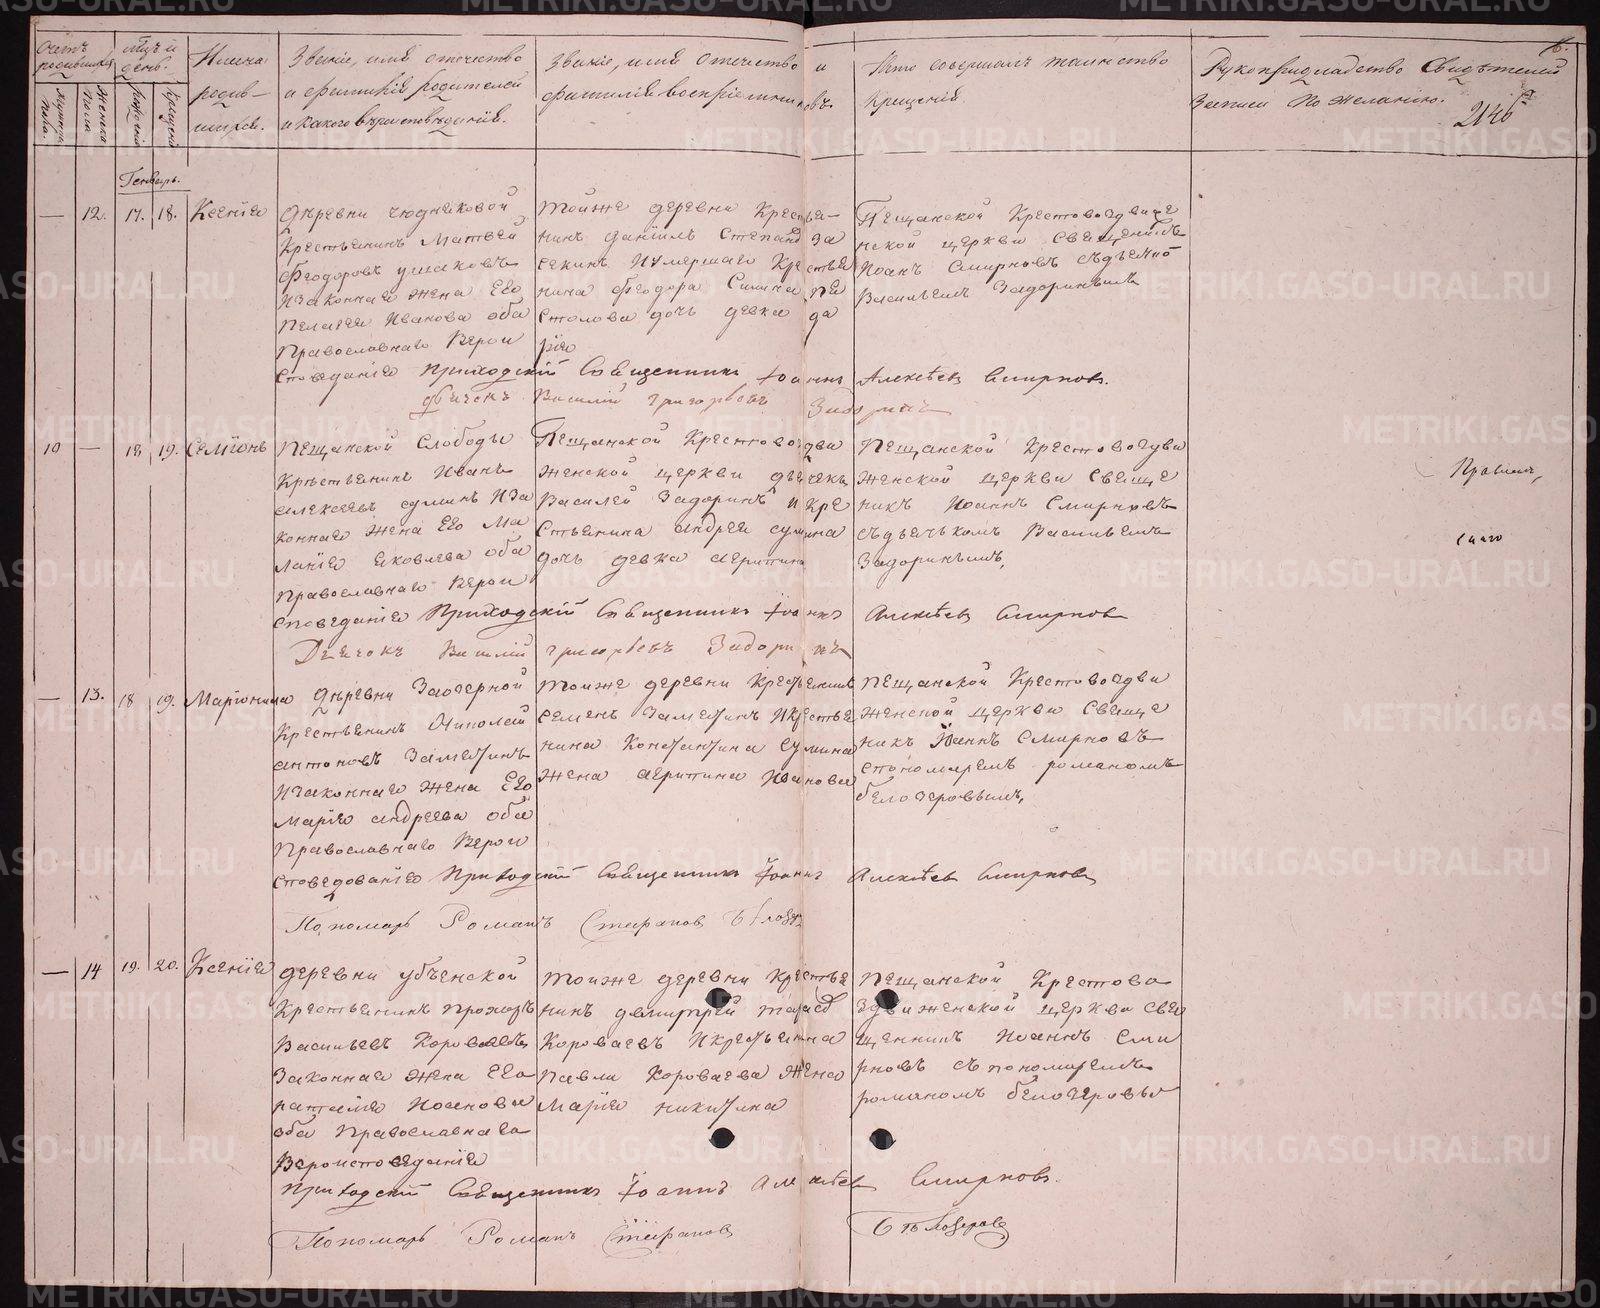 6.
Счетъ родившихся
Мужеска пола.
Женска пола
Мцъ и день.
рождения
крещения
Имена родив-шихся.
Звание, имя отечество и фамилия родителей и какого вероисповедания.
Звание, имя отечество и фамилия восприемниковъ.
Кто совершалъ таинство крещения.
Рукоприкладство Свидетелей записи по желанию.
214б
Генварь.
— 12. 17. 18. Ксения
Деревни чюдняковой
Крестьянинъ Матвей
Феодоровъ ушаковъ
И законная жена Его
Пелагея Иванова оба
Православнаго Верои
споведания
Тойже деревни Кресть-
нинъ данiилъ Степано За
секинъ И умершаго Крестья
нина Феодора Симина
дочь девка да
рiя
Пещанской Крестовоздвиже
нской церкви Священникъ
Иоанъ Смирновъ съдъячко
Васильемъ Задоринымъ
Приходский Священникъ Iоаннъ Алексѣевъ Смирновъ.
дьячокъ Василiй григорьевъ Задоринъ
10 — 18 19. Семiонъ
Пещанской Слободы
Крестьянинъ Иванъ
алексеевъ суминъ И за
конная жена Его Ма
ланiя яковлева оба
православнаго Верои
споведания
Пещанской Крестовоздви
женской церкви дьячекъ
Василей Задоринъ и Кре
стьянина андрея сумина
дочь девка агрипина
Пещанской Крестовоздви
женской церкви Свяще
никъ Иоаннъ Смирновъ
съдьячкомъ Васильемъ
Задоринымъ,
Приходскiй Священникъ Iоаннъ Алексѣевъ Смирновъ
Дьячокъ Василiй григорьевъ Задоринъ
— 13. 18 19. Марiонила
Деревни Заозерной
Крестьянинъ Николай
антоновъ Замятинъ
И законная жена Его
Марiя андреева оба
Православнаго Верои
споведованiя
Тойже деревни Крестьянинъ
семенъ Замятинъ И крестья
нина Константина Сумина
жена агрипина Иванова
Пещанской Крестовоздви
женской церкви Свяще
никъ Иоаннъ Смирновъ
спономаремъ романомъ
белозеровымъ,
Приходскiй Священникъ Iоаннъ Алексѣевъ Смирновъ
Пономарь Романъ Стефановъ Бѣлозер
— 14 19. 20. Ксенiя
деревни убъенской
Крестьянинъ прохоръ
Васильевъ Короваевъ
Законная жена Его
Иосипова
оба Православнаго
Вероисповеданiя
Тойже деревни Крестья
нинъ дмитрей
Короваевъ И крестьянина
Павла Короваева жена
Марiя никитина
Пещанской Крестово
здвиженской церкви Свя
щенникъ Иоаннъ Сми
рновъ съпономаремъ
романомъ белозеровы
Приходскiй Священникъ Iоаннъ Алексѣевъ Смирновъ.
Пономарь Романъ Стефановъ Бѣлозеровъ